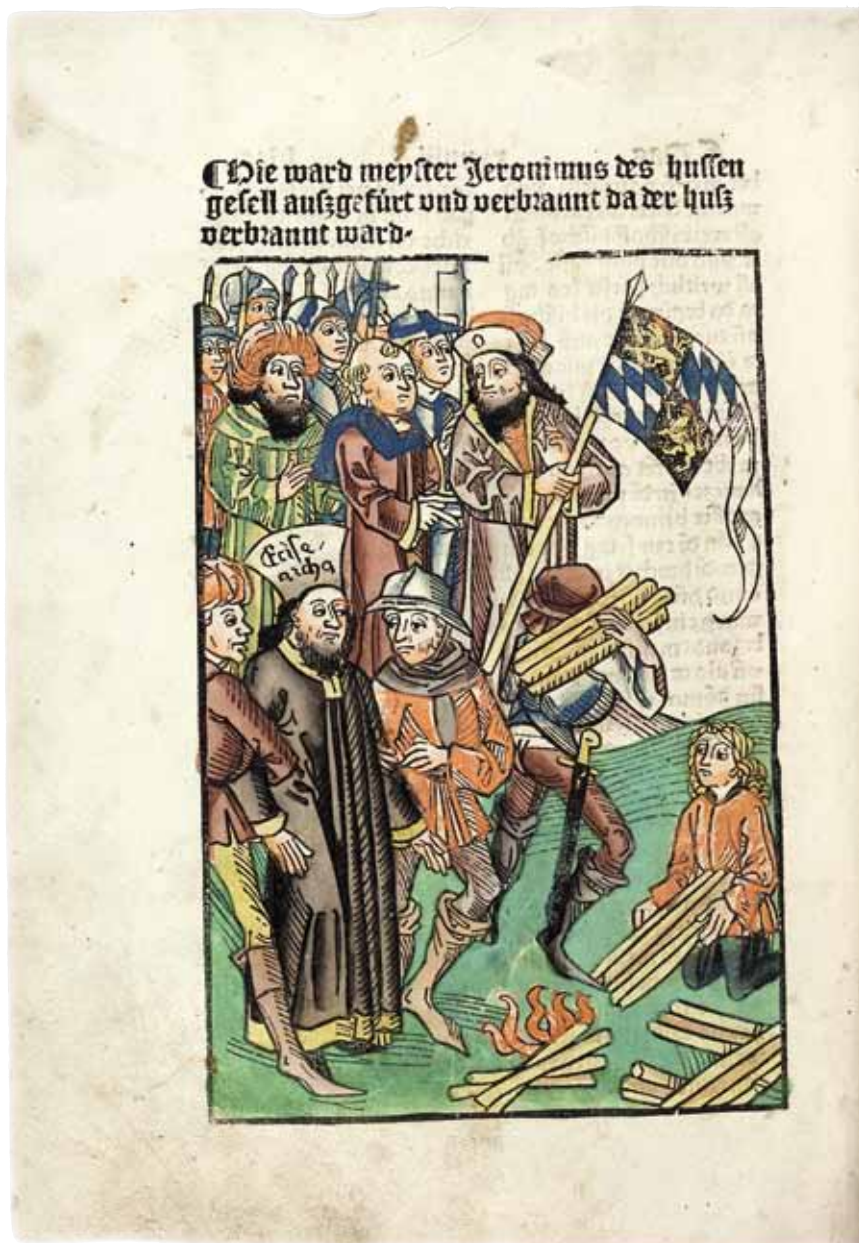 ¶Hie ward meyster Jeronimus des hussen
gesell auszgefürt vnd verbrannt da der husz
verbrannt ward.